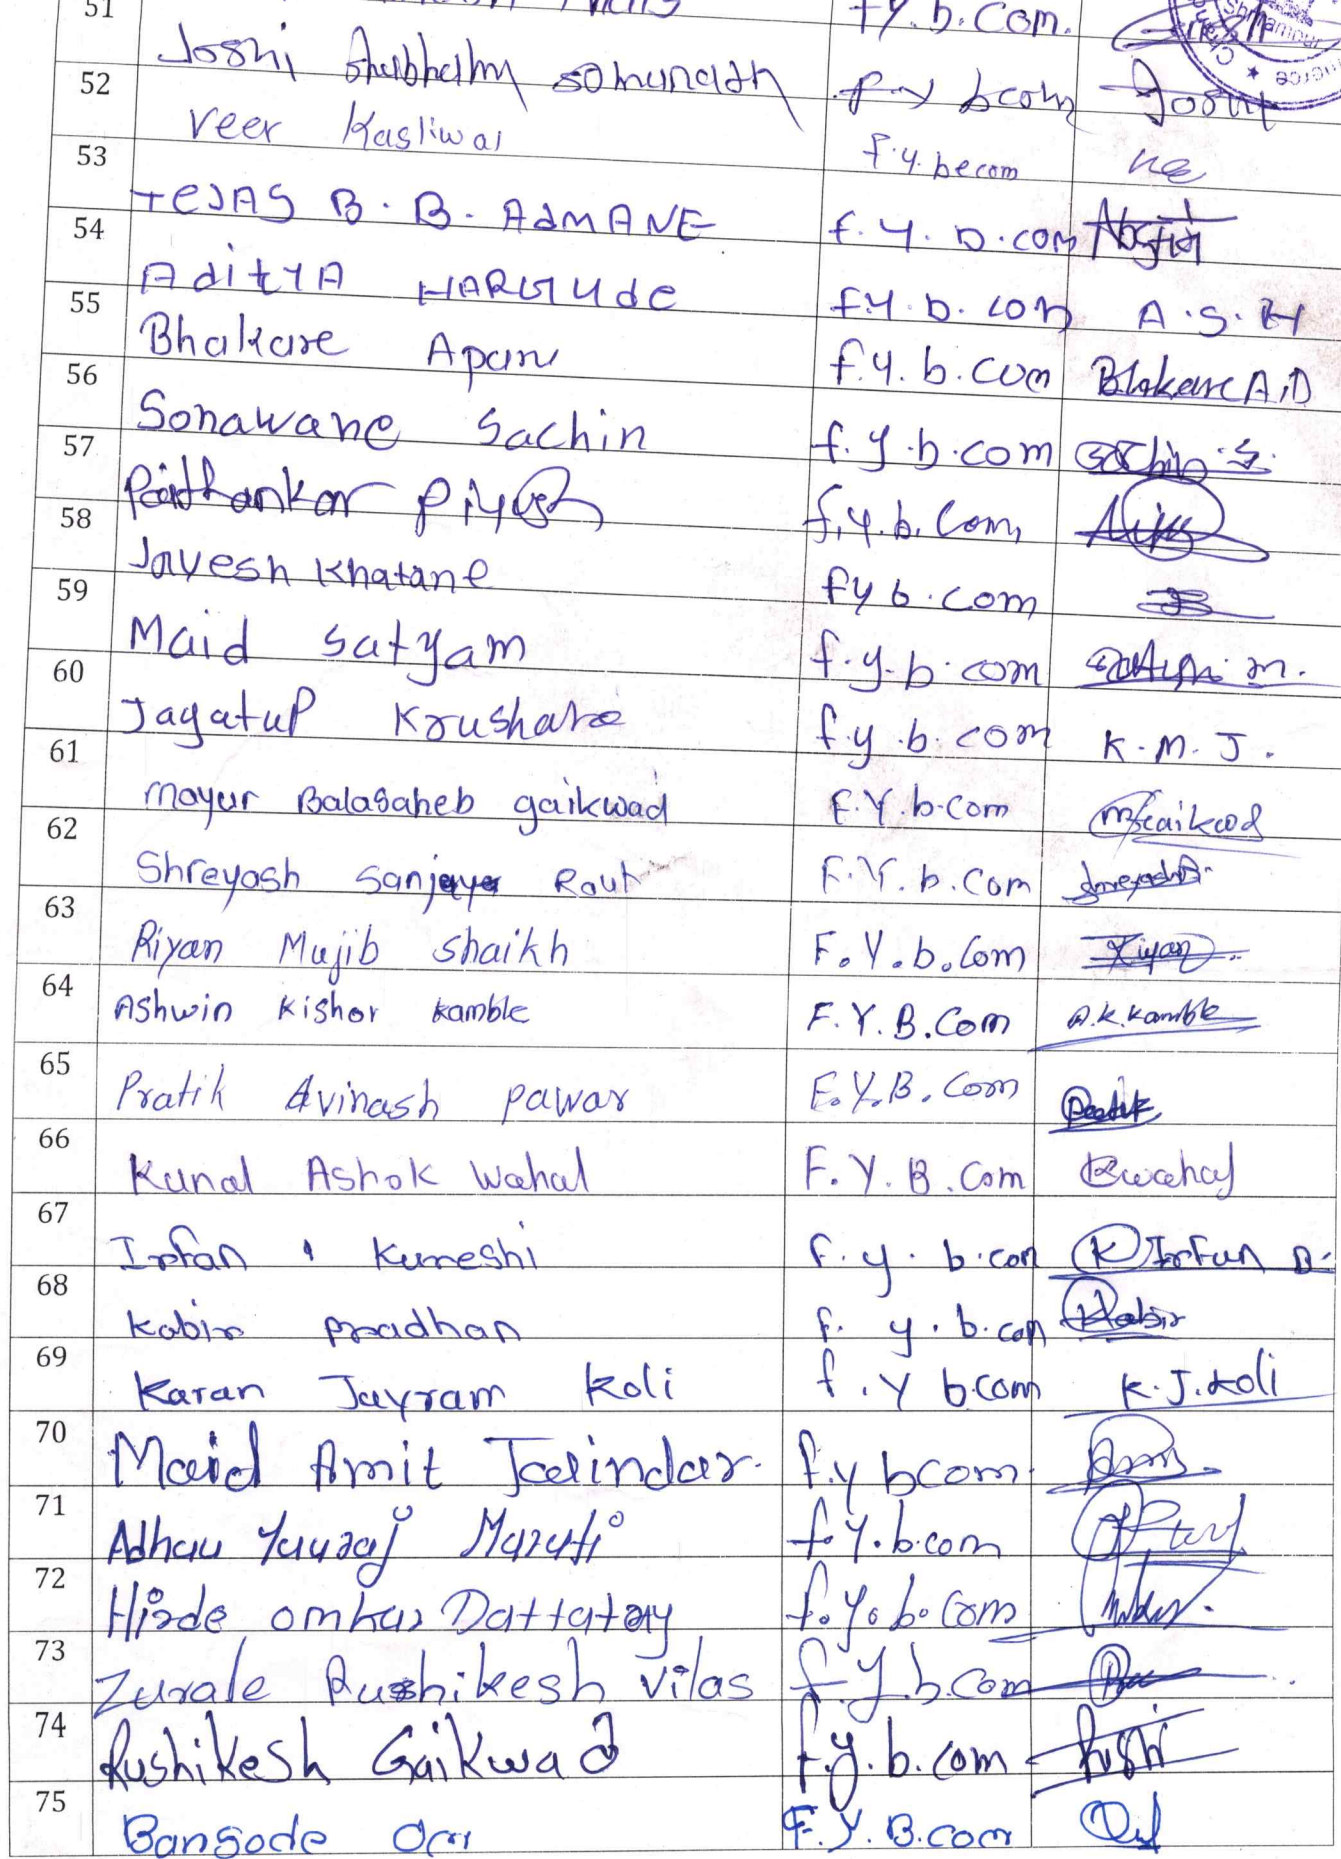 51 f.y.b.com.
52 Joshi Shubham Somunath f y bcom Joshi
53 Veer Kasliwal F.y. becom
54 TEJAS B. B. ADMANE f.y.D.com
55 AditYA HARGUde f.y.D.com A.S.H
56 Bhakare Apan f.y.b.com Bhakare A.D
57 Sonawane Sachin f.y.b.com Sachin.S.
58 Paithankar Piyush f.y.b.com,
59 Jayesh Khatane fyb.com
60 Maid Satyam f.y.b.com Satyam m.
61 Jagatap Krushna f.y.b.com K.M.J.
62 mayur Balasaheb gaikwad F.Y.b.com MGaikwad
63 Shreyash Sanjay Raut F.Y.b.Com
64 Riyan Mujib shaikh F.Y.b.Com Riyan
65 Ashwin Kishor kamble F.Y.B.Com A.K.Kamble
66 Pratik Avinash pawar F.Y.B.Com Pratik
67 Kunal Ashok Wahal F.Y.B.Com Kwahal
68 Irfan Kureshi f.y.b.con K Irfan
69 Kabir pradhan f.y.b.con Kabir
70 Karan Jayram Koli f.y bcom K.J.Koli
71 Maid Amit Jalindar. f.y bcom.
72 Adhau Yuvraj Maruti f.y.b.com
73 Hirde omkar Dattatray f.y.b.com
74 Zurale Rushikesh Vilas f.y.b.com
75 Rushikesh Gaikwad f.y.b.com Rushi
Bansode Om F.Y.B.com